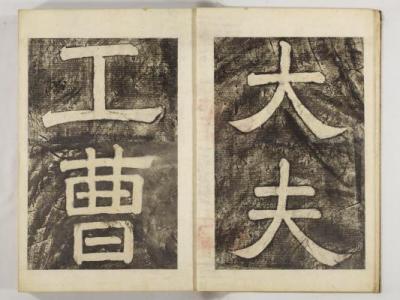 大夫
工曹